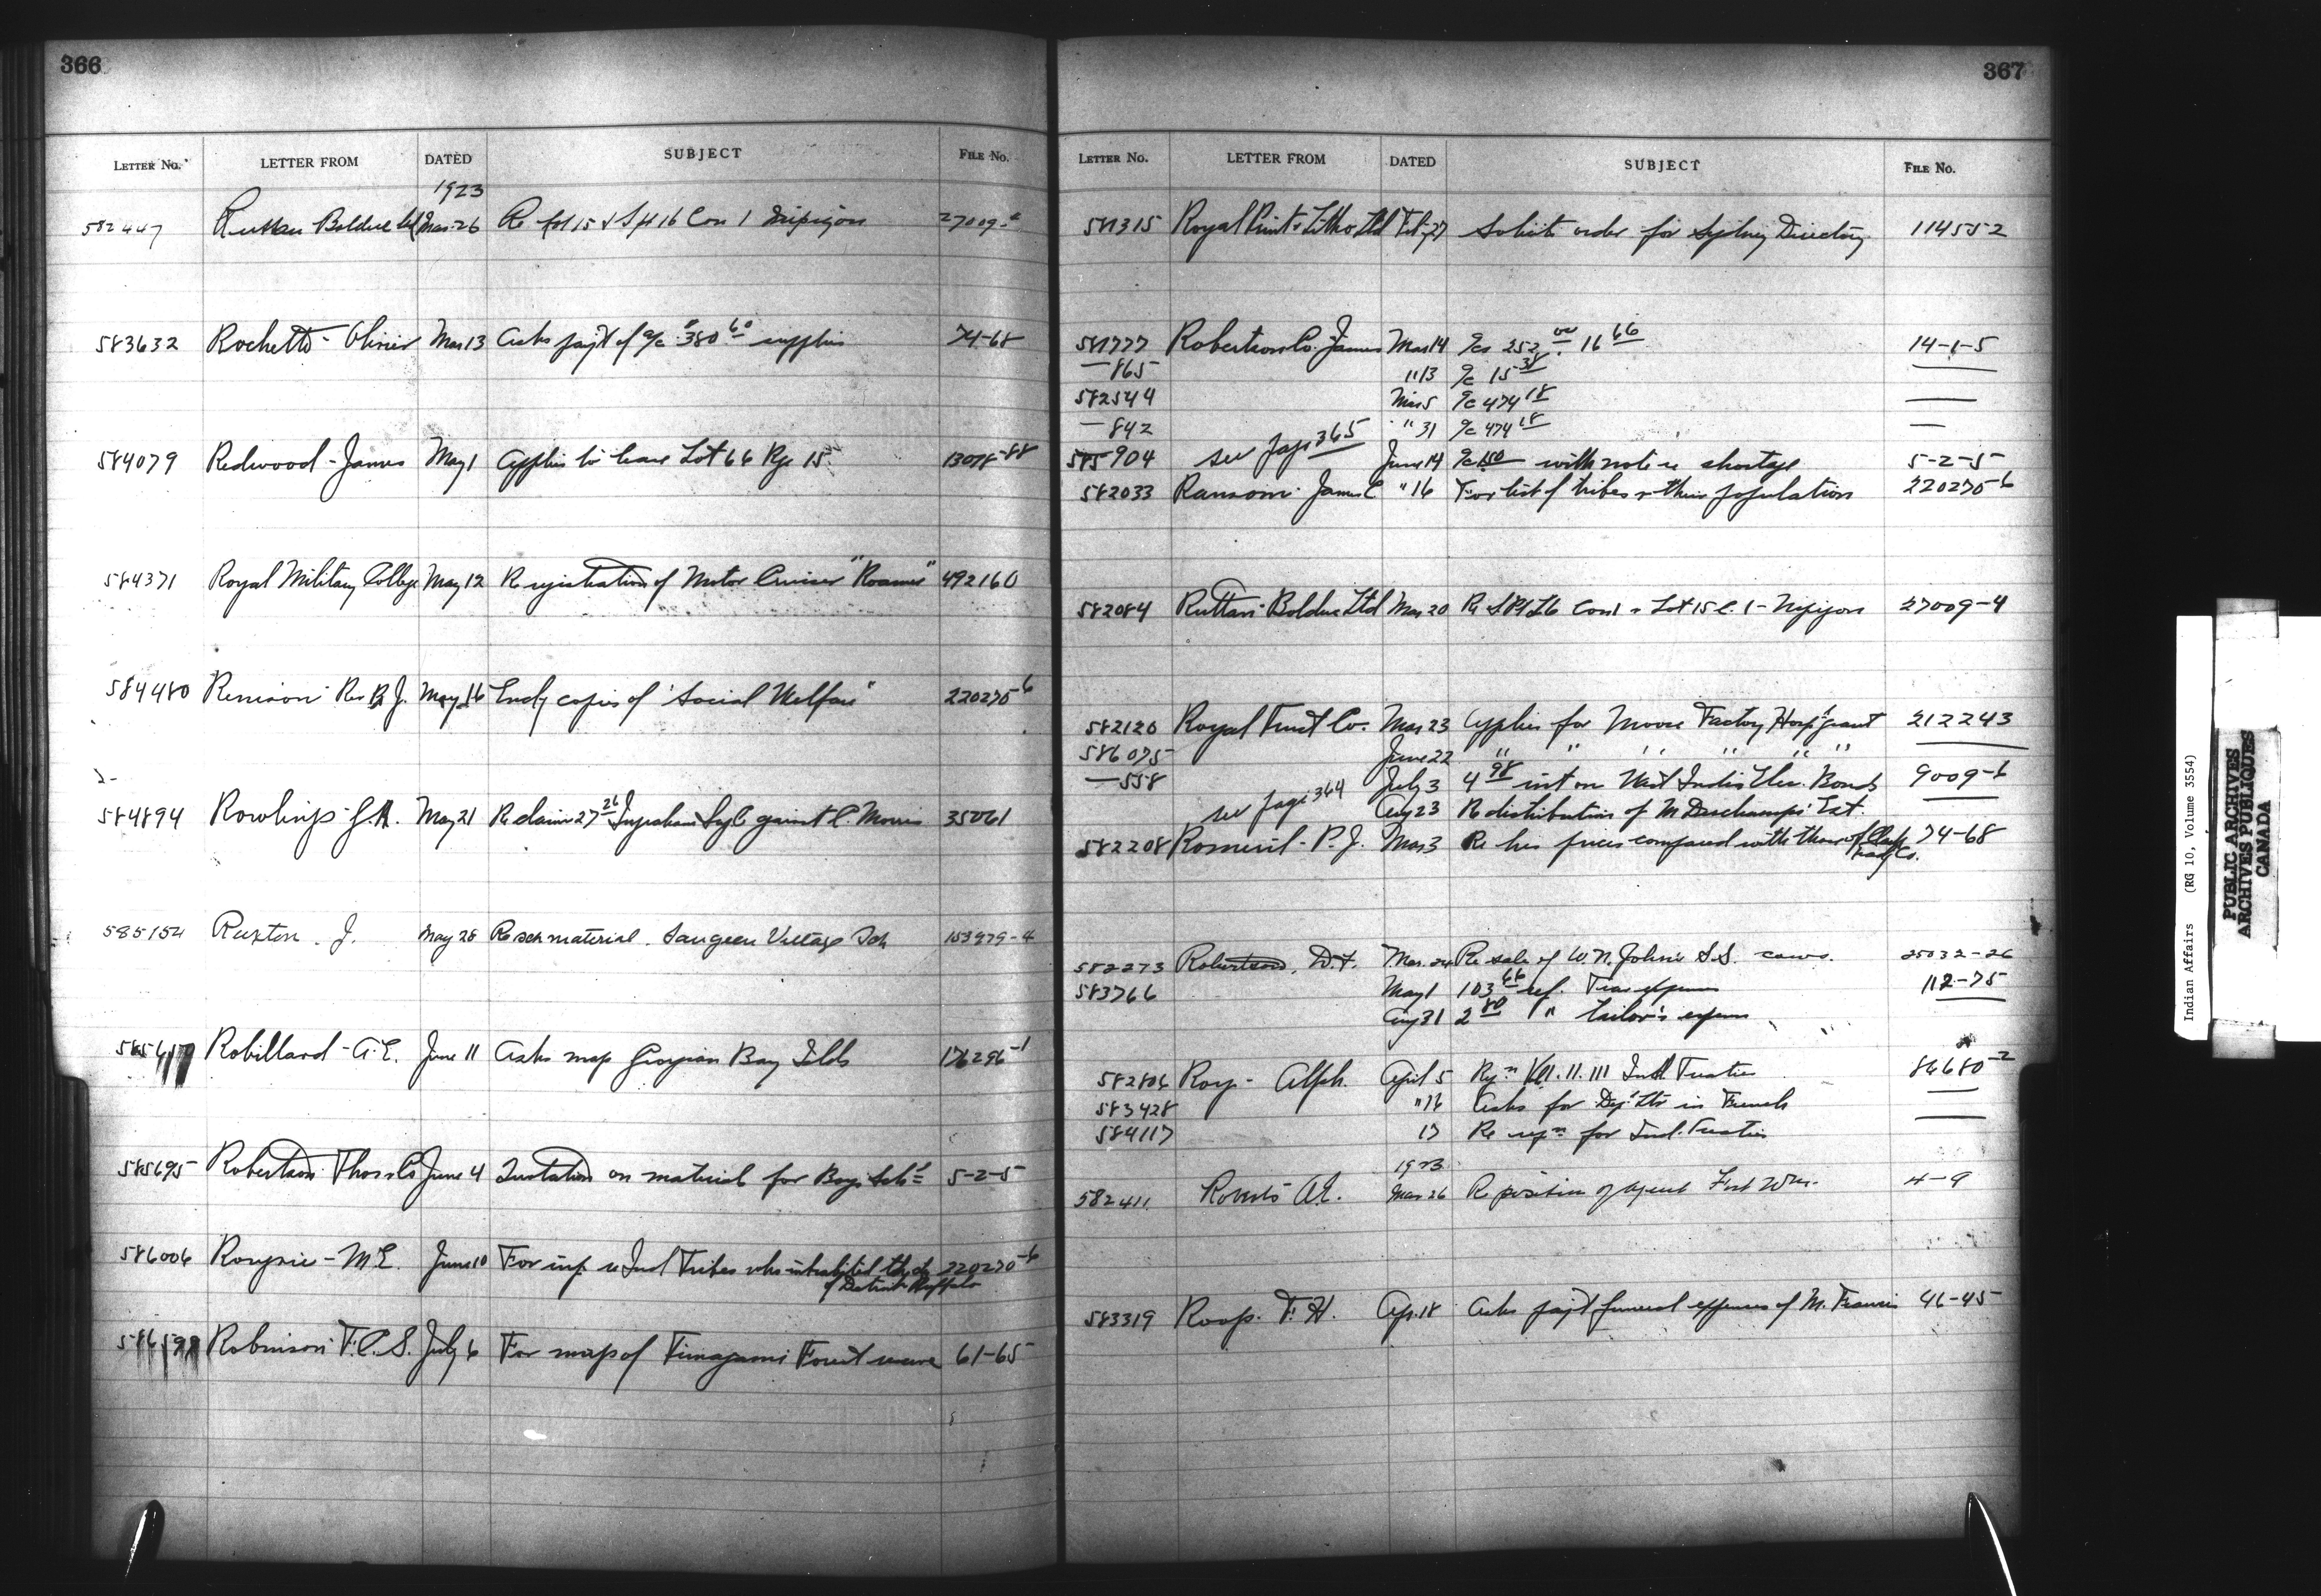 366
LETTER No. LETTER FROM DATED SUBJECT FILE No.
1923
582447 Ruttan Bolduc Ltd Mar 26 Re Lot 15 & S pt 16 Con 1 Nipigon 27009-4
583632 Rochette - Olivier Mar 13 Asks pay't of a/c $380 60 supplies 74-68
584079 Redwood - James May 1 Applies to lease Lot 66 Rge 15 13078-88
584371 Royal Military College May 12 Re registration of Motor Cruiser "Roamer" 492160
584480 Renison Rev R.J. May 16 Encl'g copies of "Social Welfare" 220270-6
584894 Rawlings - May 21 Re claim 27 26 against C. Morris 35061
585154 Ruxton. J. May 28 Re sch material. Saugeen Village Sch 153979-4
Robillard - A.E. June 11 Asks map Georgian Bay Islds 176296-1
585695 Robertson Thos & Co June 4 Quotation on material for Boys Sch'l 5-2-5
586006 - M E. June 10 For inf. re Ind Tribes who inhabited
of Detroit & Buffalo 220270-6
Robinson T.C.S. July 6 For map of Timagami Forest reserve 61-65
367
LETTER No. LETTER FROM DATED SUBJECT FILE No.
581315 Royal Print & Litho Ltd Feb 27 Solicits order for Sydney Directory 114552
581777 Robertson Co. James Mar 14 a/cs 252 00 . 16 66 14-1-5
— 865 " 13 a/c 15 38 —
582544 Mar 5 a/c 474 18 —
— 842 " 31 a/c 474 18 —
585904 see page 365 June 14 a/c 150 with note re shortage 5-2-5
582033 Ransom James C " 16 For list of tribes & their population 220270-6
582084 Ruttan Bolduc Ltd Mar 20 Re S Pt 16 Con 1 & Lot 15 C. 1 - Nipigon 27009-4
582120 Royal Trust Co. Mar 23 Applies for Moose Factory Hosp'l grant 212243
586075 June 22 " " " " " " —
— 558 July 3 4 98 int on West Indies Elec. Bonds 9009-6
see page 364 Aug 23 Re distribution of M Deschamps' Est. —
582208 Romeril - P.J. Mar 3 Re his prices compared with those of Clark
Trad'g Co. 74-68
582273 Robertson, D.F. Mar. 24 Re sale of W.N. John's S.S. cows. 25032-26
583766 May 1 103 66 ref. Trav expenses 112-75
Aug 31 2 80 " Tailor's expenses
582806 Roy - Alph. April 5 Rq'n Vol 1. 11. 111 Ind Treaties 86680-2
583428 " 16 Asks for Dep't Ltr in French —
584117 17 Re rq'n for Ind. Treaties —
1923
582411 Roberts A.E. Mar 26 Re position of agent Fort Wm. 4-9
583319 Roop. F. H. Ap. 18 Asks pay't funeral expenses of M. Francis 46-45
Indian Affairs (RG 10, Volume 3554)
PUBLIC ARCHIVES
ARCHIVES PUBLIQUES
CANADA